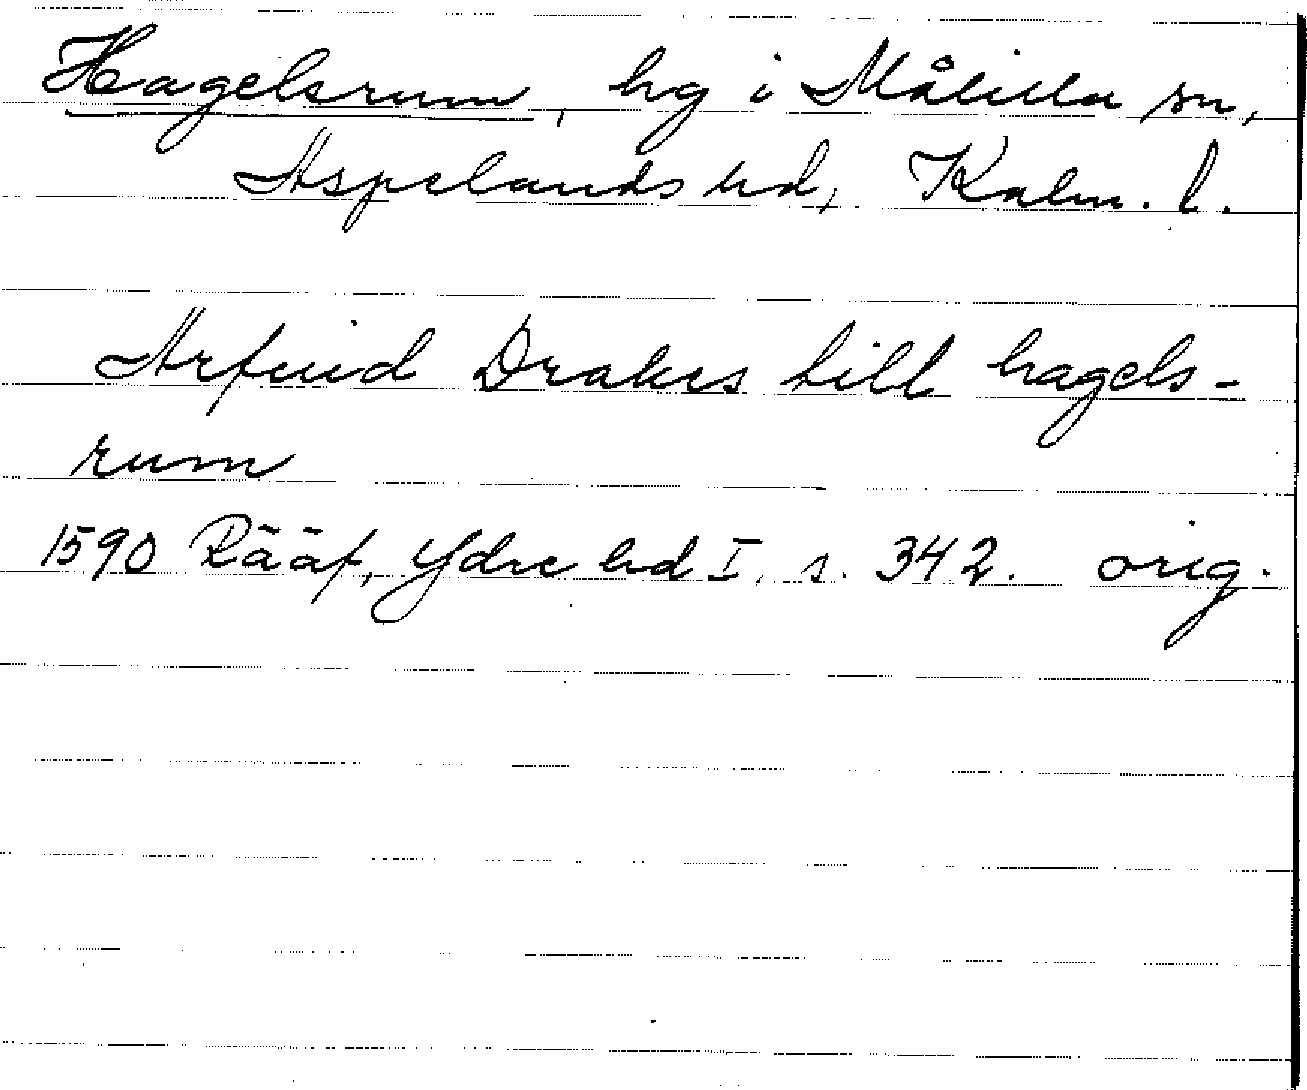 Hagelsrum, hg i Målilla sn,
Aspelands hd, Kalm. l.
Arfuid Drakes till hagels-
rum
1590 Rääf, Ydre hd I, s. 342. orig.